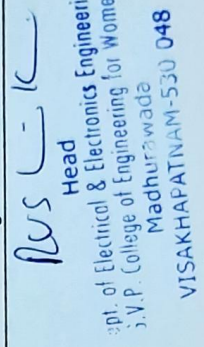 Head
ept. of Electrical & Electronics Engineeri
G.V.P. College of Engineering for Wome
Madhurawada
VISAKHAPATNAM-530 048